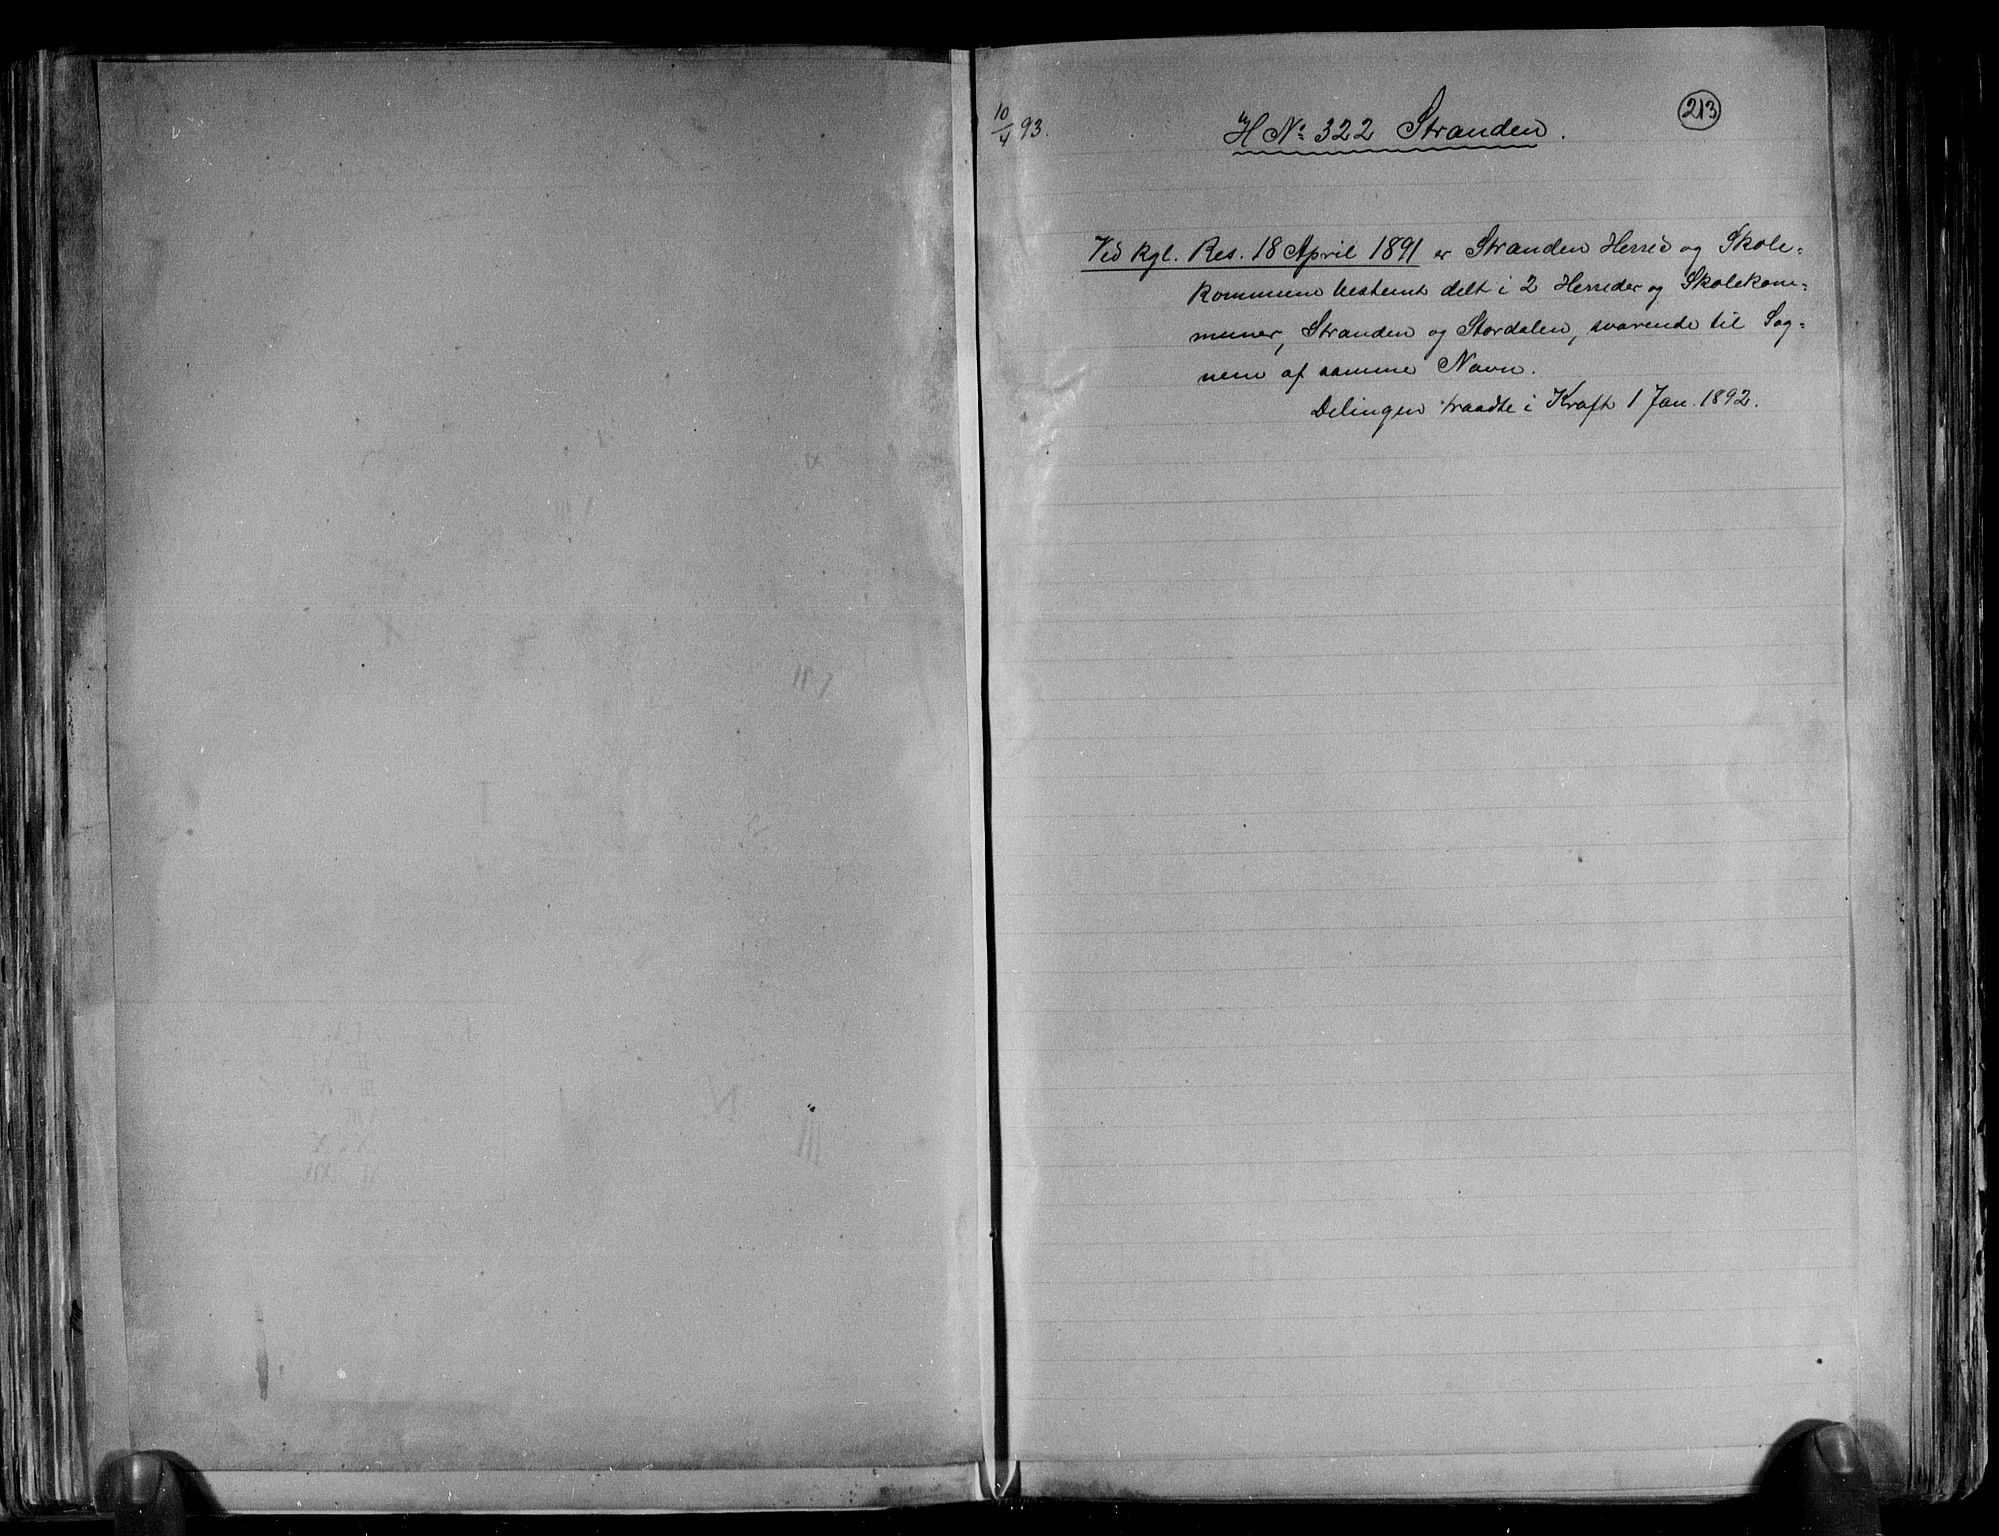 10/4 93.
H Nº 322 Stranden.
213
Ved kgl. Res. 18 April 1891 er Stranden Herred og Skole-
kommune bestemt delt i 2 Herreder og Skolekom-
muner, Stranden og Stordalen, svarende til Sog-
nene af samme Navn.
Delingen traadte i Kraft 1 Jan. 1892.